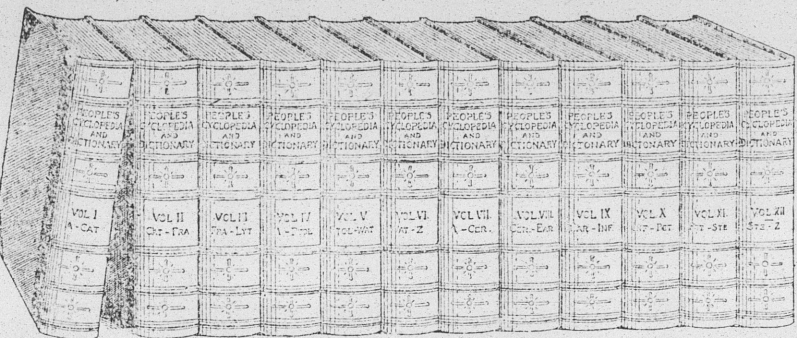 PEOPLE'S
CYCLOPEDIA
AND
DICTIONARY
VOL I
A-CAT
PEOPLE'S
CYCLOPEDIA
AND
DICTIONARY
VOL II
CAT-FRA
PEOPLE'S
CYCLOPEDIA
AND
DICTIONARY
VOL III
FRA-LYT
PEOPLE'S
CYCLOPEDIA
AND
DICTIONARY
VOL IV
PEOPLE'S
CYCLOPEDIA
AND
DICTIONARY
VOL V
TOL-WAT
PEOPLE'S
CYCLOPEDIA
AND
DICTIONARY
VOL VI
WAT-Z
PEOPLE'S
CYCLOPEDIA
AND
DICTIONARY
VOL VII
A-CER.
PEOPLE'S
CYCLOPEDIA
AND
DICTIONARY
VOL VIII
CER.-EAR
PEOPLE'S
CYCLOPEDIA
AND
DICTIONARY
VOL IX
EAR-INF
PEOPLE'S
CYCLOPEDIA
AND
DICTIONARY
VOL X
INF-PCT
PEOPLE'S
CYCLOPEDIA
AND
DICTIONARY
VOL XI
PCT-STE
PEOPLE'S
CYCLOPEDIA
AND
DICTIONARY
VOL XII
STE-Z